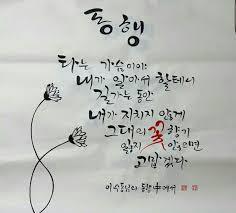 동행
타는 가슴이야
내가 알아서 할테니
길가는 동안
내가 지치지 않게
그대의 꽃 향기
잃지 않으면
고맙겠다.
이수동님의 동행 中에서